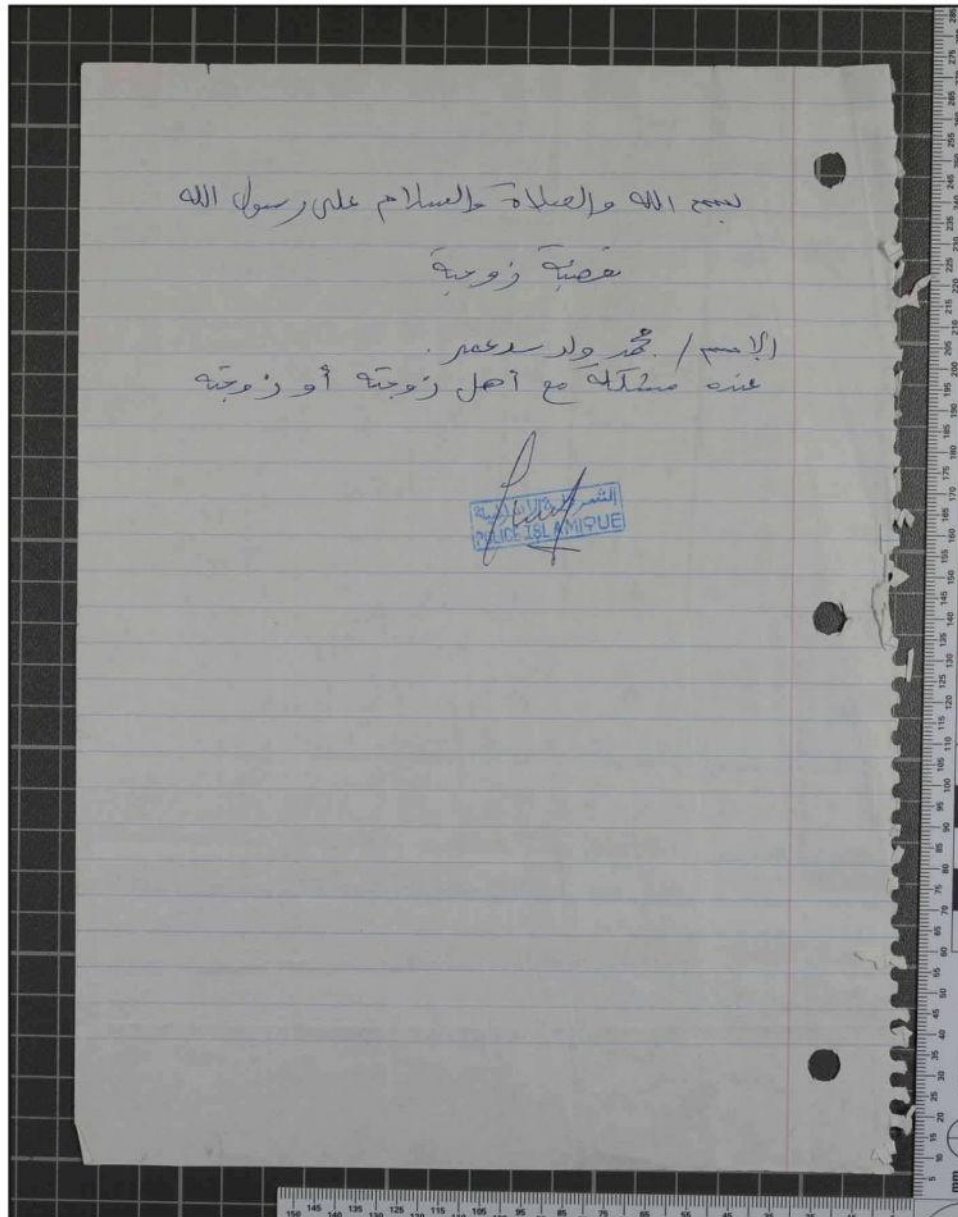 بسم الله والصلاة والسلام على رسول الله
قضية زوجية
الإسم / محمد ولد سدعمر .
عنده مشكلة مع أهل زوجته أو زوجته
الشرطة الإسلامية
POLICE ISLAMIQUE